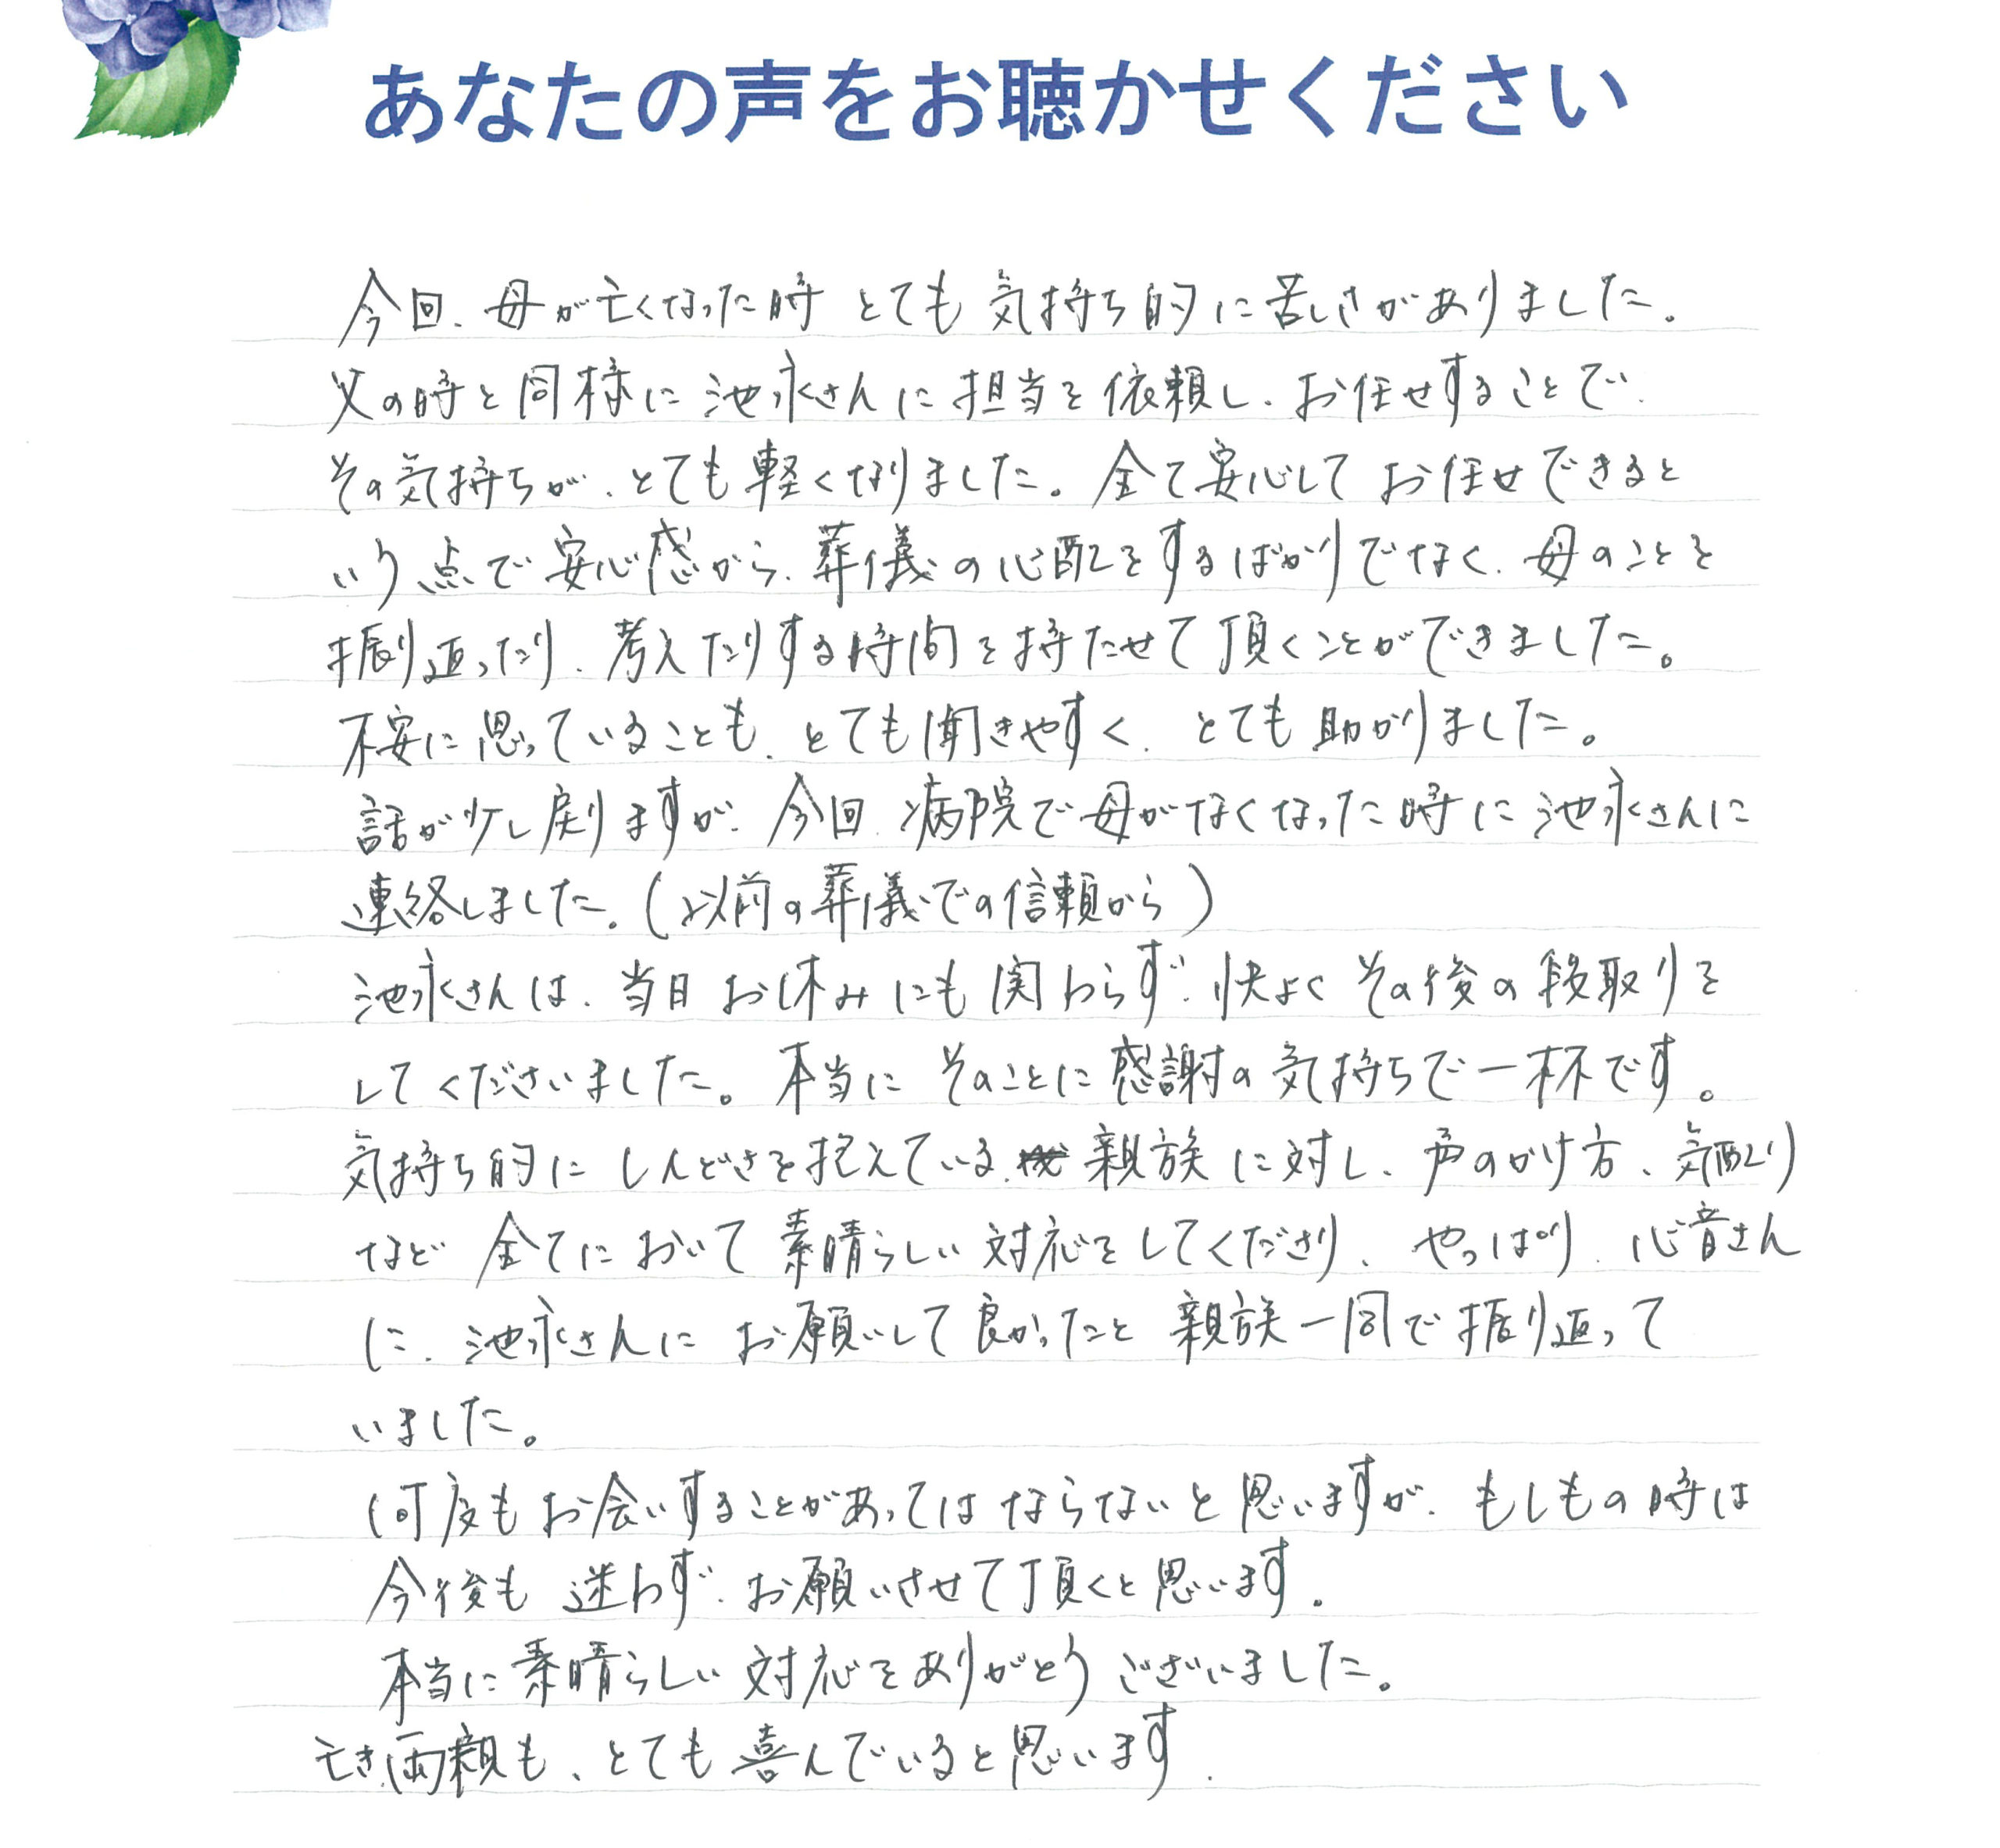 あなたの声をお聴かせください
今回、母が亡くなった時 とても 気持ち的に苦しさがありました。
父の時と同様に池永さんに担当を依頼し、お任せすることで、
その気持ちが、とても軽くなりました。全て安心して お任せできると
いう点で安心感から、葬儀の心配をするばかりでなく、母のことを
振り返ったり、考えたりする時間を持たせて頂くことができました。
不安に思っていることも、とても聞きやすく、とても助かりました。
話が少し戻りますが、今回、病院で母がなくなった時に池永さんに
連絡しました。(以前の葬儀での信頼から)
池永さんは、当日お休みにも関わらず、快よくその後の段取りを
してくださいました。本当に そのことに感謝の気持ちで一杯です。
気持ち的にしんどさを抱えている、親族に対し、声のかけ方、気配り
など 全てにおいて 素晴らしい対応をしてくださり、やっぱり、心音さん
に、池永さんに お願いして良かったと 親族一同で振り返って
いました。
何度もお会いすることがあってはならないと思いますが、もしもの時は
今後も 迷わず、お願いさせて頂くと思います。
本当に素晴らしい対応をありがとうございました。
亡き両親も、とても喜んでいると思います.